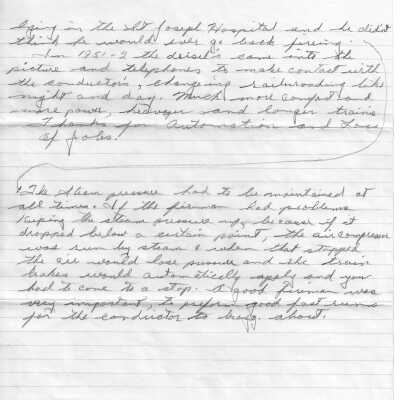 being in the St Joseph Hospital and he didn't
think he would ever go back fireing.
In 1951-2 the deisels came into the
picture and telephones to make contact with
the conductors, changing railroading like
night and day. Much more comfort and
more power, heavyer and longer trains
Thanks for Automation and Loss
of jobs.
The steam pressure had to be maintained at
all times. If the fireman had problems
keeping the steam pressure up, because if it
dropped below a certain point, the air compressor
was run by steam & when that stopped
the air would lose pressure and the train
brakes would automatically apply and you
had to come to a stop. A good fireman was
very important, to perform good fast runs
for the conductor to bragg about.